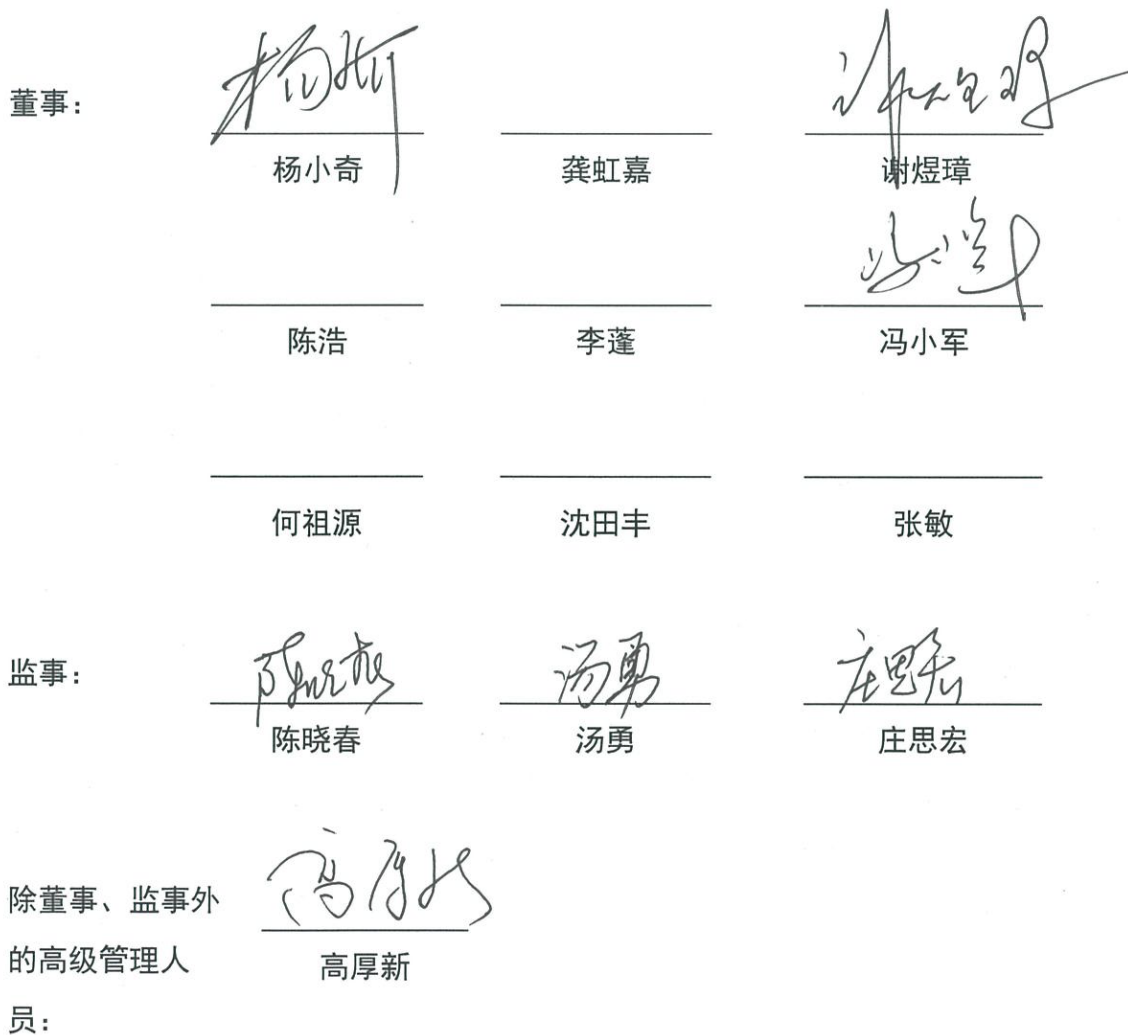 董事：
杨小奇 龚虹嘉 谢煜璋
陈浩 李蓬 冯小军
何祖源 沈田丰 张敏
监事：
汤勇 庄思宏
陈晓春 汤勇 庄思宏
高厚新
除董事、监事外
的高级管理人 高厚新
员：